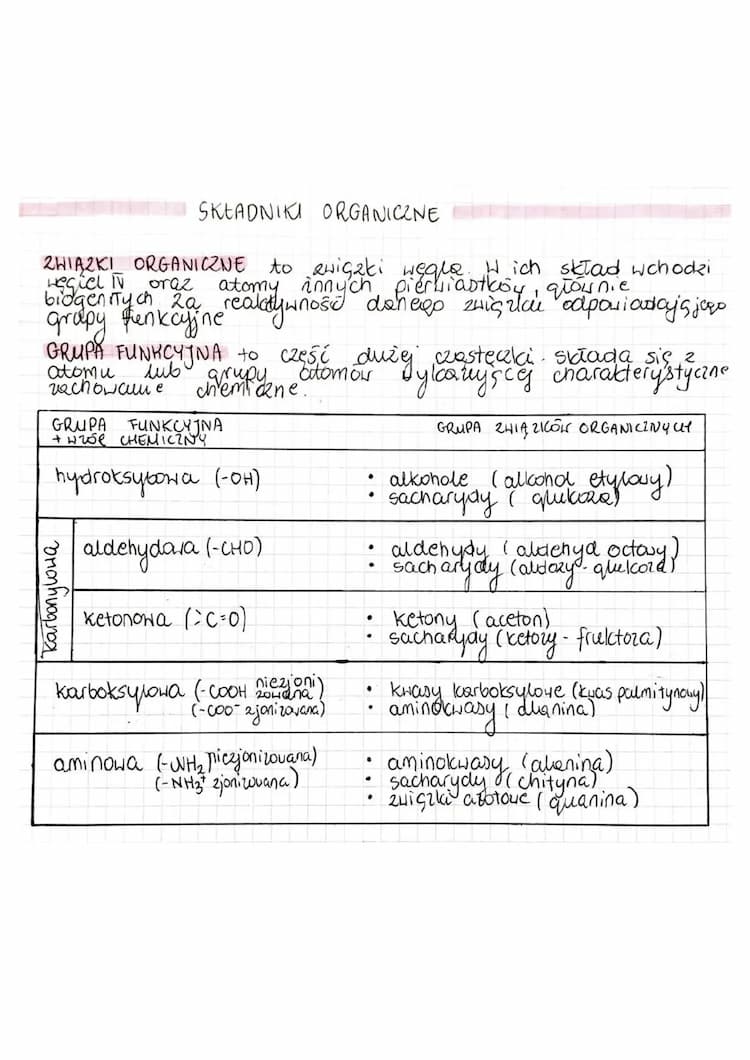 SKŁADNIKI ORGANICZNE
ZWIĄZKI ORGANICZNE to związki węgla. W ich skład wchodzi
węgiel IV oraz atomy innych pierwiastków, głównie
biogennych za reaktywność danego związku odpowiadają jego
grupy funkcyjne
GRUPA FUNKCYJNA to część dużej cząsteczki. składa się z
atomu lub grupy atomów wykazującej charakterystyczne
zachowanie chemiczne.
GRUPA FUNKCYJNA
+ WZÓR CHEMICZNY
GRUPA ZWIĄZKÓW ORGANICZNYCH
hydroksylowa (-OH)
• alkohole (alkohol etylowy)
• sacharydy (glukoza)
karbonylowa
aldehydowa (-CHO)
• aldehydy (aldehyd octowy)
• sacharydy (aldozy - glukoza)
ketonowa (>C=O)
• ketony (aceton)
• sacharydy (ketozy - fruktoza)
karboksylowa (-COOH niezjonizowana)
(-COO⁻ zjonizowana)
• kwasy karboksylowe (kwas palmitynowy)
• aminokwasy (alanina)
aminowa (-NH₂ niezjonizowana)
(-NH₃⁺ zjonizowana)
• aminokwasy (alanina)
• sacharydy (chityna)
• związki azotowe (guanina)